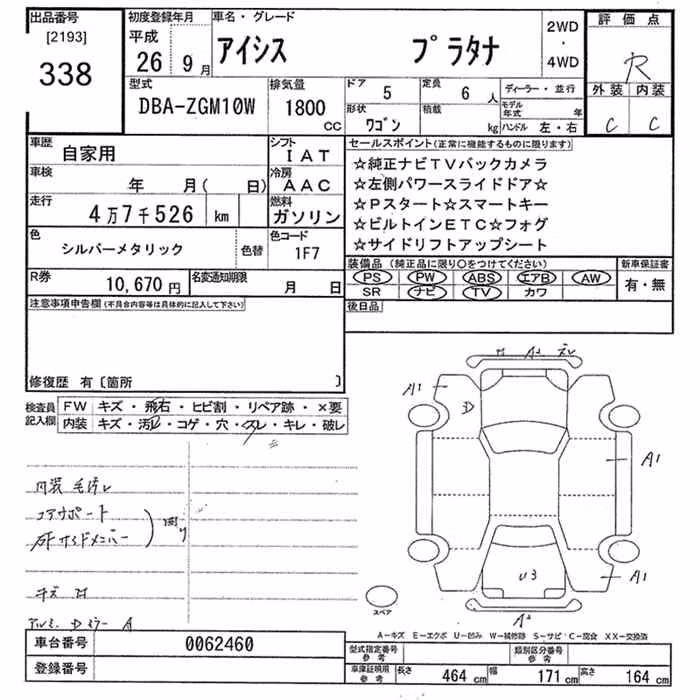 出品番号
[2193]
338
初度登録年月
平成
26 9月
車名・グレード
アイシス プラタナ
2WD
・
4WD
評価点
R
外装 内装
C C
型式
DBA-ZGM10W
排気量
1800
CC
ドア
5
定員
6 人
形状
ワゴン
積載
kg
ディーラー・並行
モデル年式 年
ハンドル 左・右
車歴
自家用
シフト
IAT
車検
年 月( 日)
冷房
AAC
走行
4万7千526 km
燃料
ガソリン
色
シルバーメタリック
色替
色コード
1F7
R券
10,670円
名変通知期限
月 日
セールスポイント(正常に機能するものに限ります)
☆純正ナビTVバックカメラ
☆左側パワースライドドア☆
☆Pスタート☆スマートキー
☆ビルトインETC☆フォグ
☆サイドリフトアップシート
装備品(純正品に限り○をつけてください)
PS PW ABS エアB AW
SR ナビ TV カワ
新車保証書
有・無
後日品
注意事項申告欄(不具合内容等は具体的に記入して下さい)
修復歴 有〔箇所 〕
検査員記入欄
FW キズ・飛石・ヒビ割・リペア跡・×要
内装 キズ・汚レ・コゲ・穴・スレ・キレ・破レ
コアサポート
キズ
A
A1
D
A1
U3
A1
スペア
A-キズ E-エクボ U-凹み W-補修跡 S-サビ C-腐食 XX-交換済
車台番号
0062460
登録番号
型式指定番号
参考
類別区分番号
参考
車庫証明用
参考
長さ 464 cm 幅 171 cm 高さ 164 cm